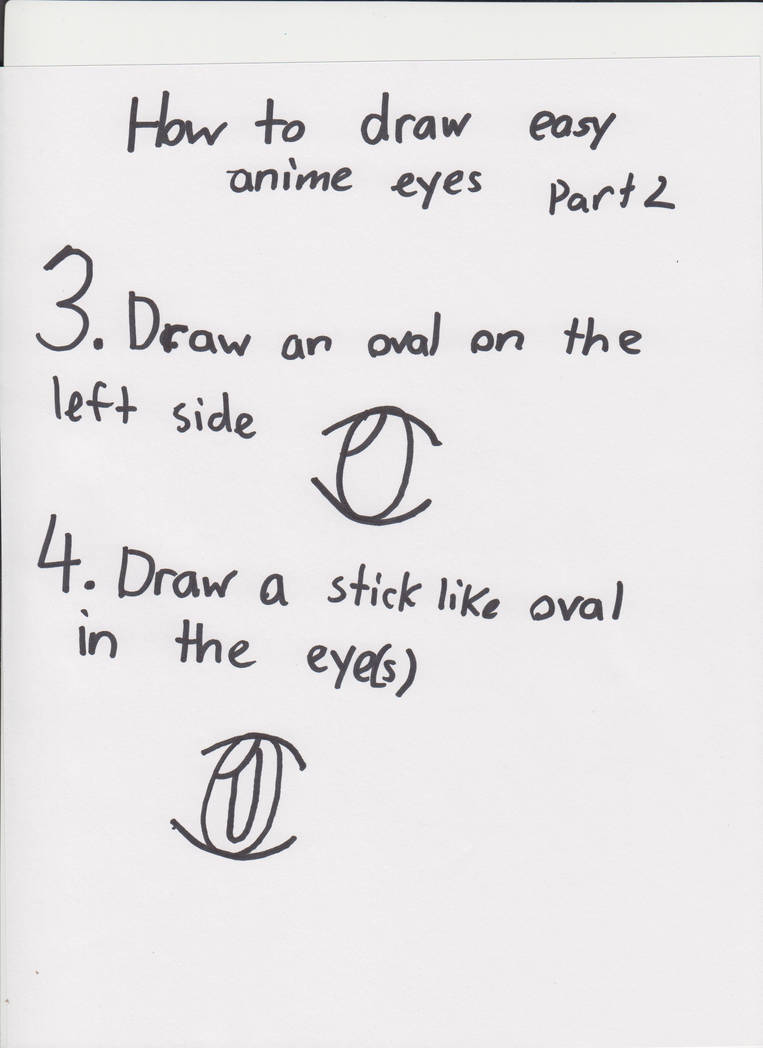 How to draw easy
anime eyes Part 2
3. Draw an oval on the
left side
4. Draw a stick like oval
in the eye(s)